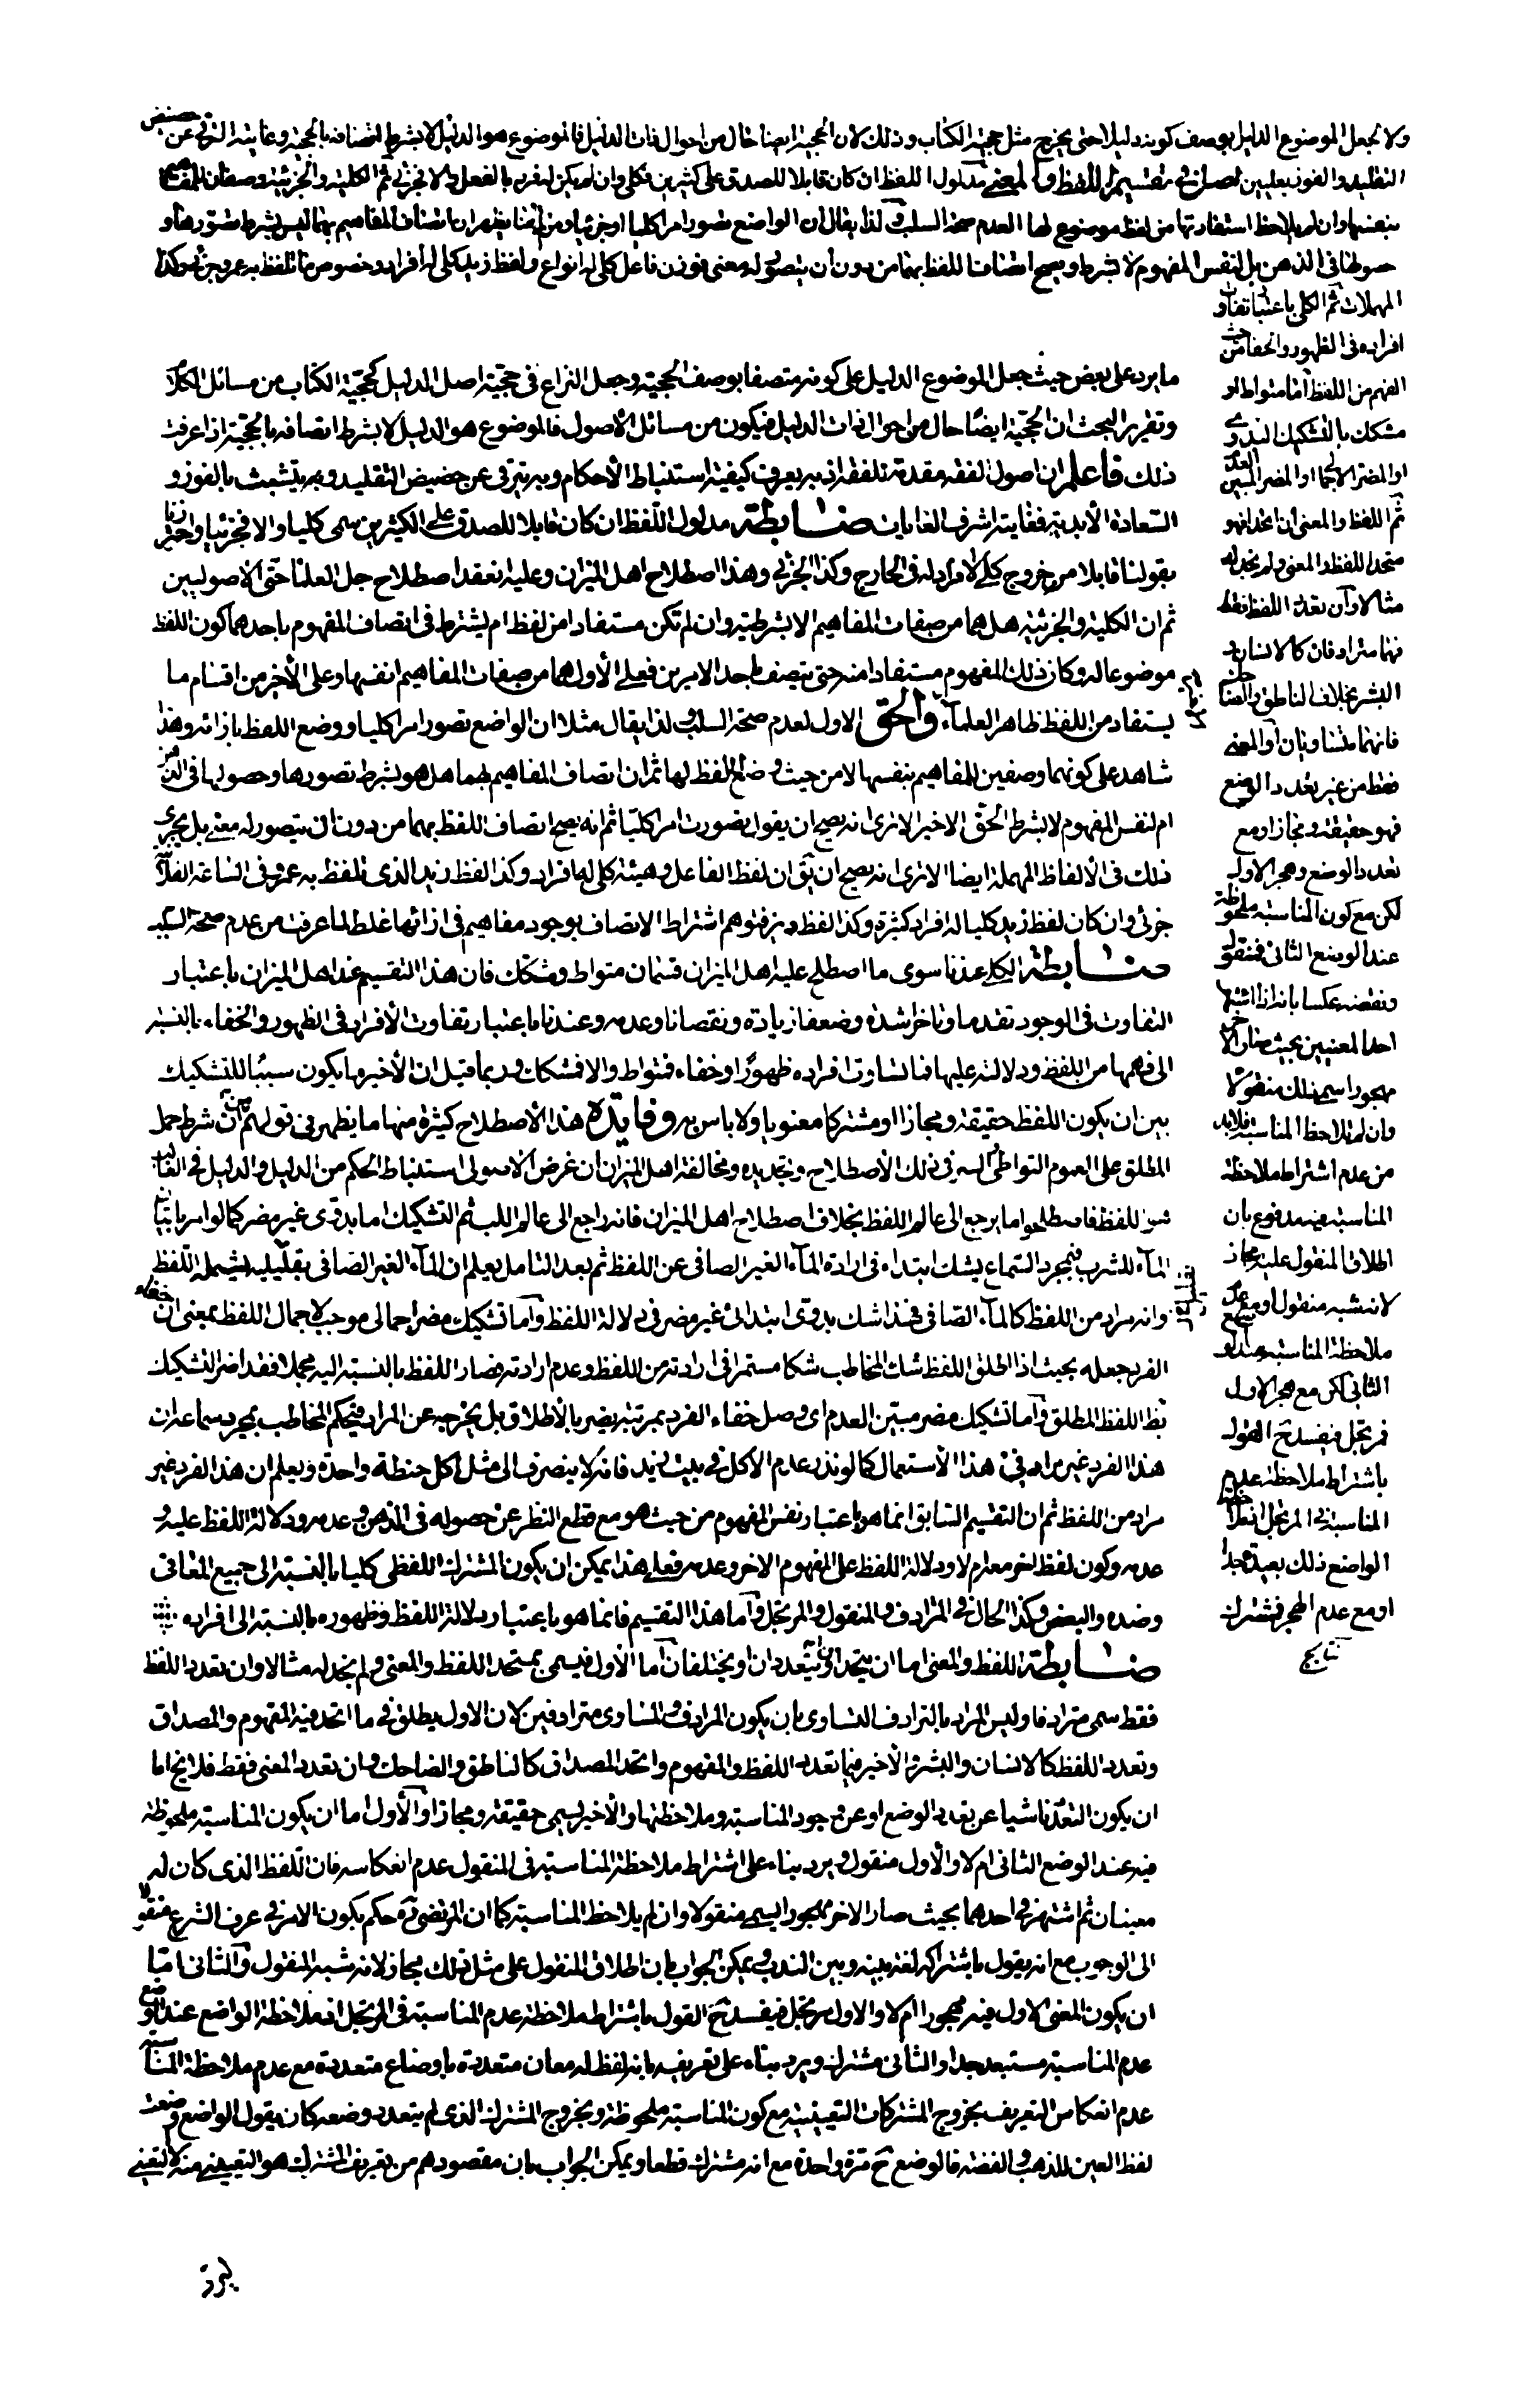 ولا نجعل الموضوع الدليل بوصف كونه دليلا حتى يخرج مثل حجية الكتاب وذلك لان الحجية ايضا حال من احوال ذات الدليل فالموضوع هو الدليل لا بشرط اتصافه بالحجية وغايته الترقى عن حضيض
التقليد والفوز بعليين اصل فى تقسيم اللفظ والمعنى مدلول اللفظ ان كان قابلا للصدق على كثيرين فكلى وان لم يكن له فرد بالفعل والا فجزئى ثم الكلية والجزئية وصفان للمفاهيم
بنفسها وان لم يلاحظ استفادتها من لفظ موضوع لها لعدم صحة السلب لذا يقال ان الواضع تصور امرا كليا او جزئيا ومن هنا يظهر ان اتصاف المفاهيم بهما ليس بشرط تصورها و
حصولها فى الذهن بل لنفس المفهوم لا بشرط ويصح اتصاف اللفظ بهما من دون ان يتصور له معنى فوزن فاعل كلى له انواع ولفظ زيد كلى له افراد وخصوص ما تلفظ به عمرو جزئى وكذا
المهملات ثم الكلى باعتبار تفاوت
افراده فى الظهور والخفاء من حيث
الفهم من اللفظ اما متواط او
مشكك بالتشكيك البدوى
او المضر الاجمالى او المضر المبين العدم
ثم اللفظ والمعنى ان اتحدا فهو
متحد اللفظ والمعنى ولم نجد له
مثالا وان تعدد اللفظ فقط
فهما مترادفان كالانسان و
البشر بخلاف الناطق والضاحك
فانهما متساويان او المعنى
فقط من غير تعدد الوضع
فهو حقيقة ومجاز او مع
تعدد الوضع وهجر الاول
لكن مع كون المناسبة ملحوظة
عند الوضع الثانى فمنقول
ونقضه عكسا بانه اذا اشتهر
احد المعنيين بحيث صار الآخر
مهجورا سمى ذلك منقولا
وان لم تلاحظ المناسبة فلا بد
من عدم اشتراط ملاحظة
المناسبة فيه مدفوع بان
اطلاق المنقول عليه مجاز
لانه شبه منقول او مع عدم
ملاحظة المناسبة عند
الثانى لكن مع هجر الاول
فمرتجل فيفسد ح القول
باشتراط ملاحظة عدم
المناسبة فى المرتجل
الواضع ذلك بعيد جدا
او مع عدم الهجر فمشترك
ما يرد على بعض حيث جعل الموضوع الدليل على كونه متصفا بوصف الحجية وجعل النزاع فى حجية اصل الدليل كحجية الكتاب من مسائل الكلام
وتقرير البحث ان الحجية ايضا حال من احوال ذات الدليل فيكون من مسائل الاصول فالموضوع هو الدليل لا بشرط اتصافه بالحجية اذا عرفت
ذلك فاعلم ان اصول الفقه مقدمة للفقه اذ به يعرف كيفية استنباط الاحكام وبه يترقى عن حضيض التقليد وبه يتشبث بالفوز و
السعادة الابدية فغايته اشرف الغايات ضابطة مدلول اللفظ ان كان قابلا للصدق على الكثيرين سمى كليا والا فجزئيا واحترزنا
بقولنا قابلا من خروج كلى لا افراد له فى الخارج وكذا الجزئى وهذا اصطلاح اهل الميزان وعليه انعقد اصطلاح جل العلماء حتى الاصوليين
ثم ان الكلية والجزئية هل هما من صفات المفاهيم لا بشرطية وان لم تكن مستفادا من لفظ ام يشترط فى اتصاف المفهوم باحدهما كون اللفظ
موضوعا له وكان ذلك المفهوم مستفادا منه حتى يتصف باحد الامرين فعلى الاول هما من صفات المفاهيم انفسها وعلى الاخير من اقسام ما
يستفاد من اللفظ ظاهر العلماء والحق الاول لعدم صحة السلب ولذا يقال مثلا ان الواضع تصور امرا كليا ووضع اللفظ بازائه وهذا
شاهد على كونهما وصفين للمفاهيم بنفسها لا من حيث وضع اللفظ لها ثم ان اتصاف المفاهيم بهما هل هو بشرط تصورها وحصولها فى الذهن
ام لنفس المفهوم لا بشرط الحق الاخير الا ترى انه يصح ان يقول تصورت امرا كليا ثم انه يصح اتصاف اللفظ بهما من دون ان يتصور له معنى بل يجرى
ذلك فى الالفاظ المهملة ايضا الا ترى انه يصح ان يق ان لفظ الفاعل وهيئته كلى له افراد وكذا لفظ زيد الذى تلفظ به عمرو فى الساعة الفلانية
جزئى وان كان لفظ زيد كليا له افراد كثيرة وكذا لفظ ديز فتوهم اشتراط الاتصاف بوجود مفاهيم فى ازائها غلط لما عرفت من عدم صحة السلب
ضابطة الكلى عندنا سوى ما اصطلح عليه اهل الميزان قسمان متواط ومشكك فان هذا التقسيم عند اهل الميزان باعتبار
التفاوت فى الوجود تقدما وتاخرا شدة وضعفا زيادة ونقصانا وعدمه وعندنا باعتبار تفاوت الافراد فى الظهور والخفاء بالنسبة
الى فهمها من اللفظ ودلالته عليها فما تساوت افراده ظهورا وخفاء فمتواط والا فمشكك وربما قيل ان الاخير ما يكون سببا للتشكيك
بين ان يكون اللفظ حقيقة ومجازا او مشتركا معنويا ولا باس به وفايدة هذا الاصطلاح كثيرة منها ما يظهر فى قولهم من ان شرط حمل
المطلق على العموم التواطى السر فى ذلك الاصطلاح وتجديده ومخالفة اهل الميزان ان غرض الاصولى استنباط الحكم من الدليل والدليل فى الغالب
هو اللفظ فاصطلحوا ما يرجع الى عالم اللفظ بخلاف اصطلاح اهل الميزان فانه راجع الى عالم اللب ثم التشكيك اما بدوى غير مضر كما لو امر باتيان
الماء للشرب فبمجرد السماع يشك ابتداء فى ارادة الماء الغير الصافى عن اللفظ ثم بعد التامل يعلم ان الماء الغير الصافى بقليل يشمله اللفظ
وانه مراد من اللفظ كالماء الصافى فهذا شك بدوى ابتدائى غير مضر فى دلالة اللفظ واما تشكيك مضر اجمالى موجب لاجمال اللفظ بمعنى ان خفاء
الفرد جعله بحيث اذا اطلق اللفظ شك المخاطب شكا مستمرا فى ارادته من اللفظ وعدم ارادته فصار اللفظ بالنسبة اليه مجملا فقد اضر التشكيك
اللفظ المطلق واما تشكيك مضر مبين العدم اى وصل خفاء الفرد بمرتبة يضر بالاطلاق بل يخرجه عن المراد فيحكم المخاطب بمجرد سماعه ان
هذا الفرد غير مراد فى هذا الاستعمال كما لو نذر عدم الاكل فى بيت زيد فانه لا ينصرف الى مثل اكل حنطة واحدة ويعلم ان هذا الفرد غير
مراد من اللفظ ثم ان التقسيم السابق انما هو باعتبار نفس المفهوم من حيث هو مع قطع النظر عن حصوله فى الذهن وعدمه ودلالة اللفظ عليه و
عدمه وكون لفظ اخر معه ام لا ودلالة اللفظ على المفهوم الاخر وعدمه فعلى هذا يمكن ان يكون المشترك اللفظى كليا بالنسبة الى جميع المعانى
وضده والبعض وكذا الحال فى المترادف والمنقول والمرتجل واما هذا التقسيم فانما هو باعتبار دلالة اللفظ وظهوره بالنسبة الى افراده
ضابطة اللفظ والمعنى اما ان يتحدا او يتعددان او يختلفان اما الاول فيسمى بمتحد اللفظ والمعنى ولم نجد له مثالا وان تعدد اللفظ
فقط سمى مترادفا وليس المراد بالترادف التساوى بان يكون المرادف والمساوى مترادفين لان الاول يطلق فى ما اتحد فيه المفهوم والمصداق
وتعدد اللفظ كالانسان والبشر والاخير فيما تعدد اللفظ والمفهوم واتحد المصداق كالناطق والضاحك وان تعدد المعنى فقط فلا يخ اما
ان يكون التعدد ناشيا عن تعدد الوضع او عن وجود المناسبة وملاحظتها والاخير يسمى حقيقة ومجازا والاول اما ان يكون المناسبة ملحوظة
فيه عند الوضع الثانى ام لا والاول منقول ويرد بناء على اشتراط ملاحظة المناسبة فى المنقول عدم انعكاسه فان اللفظ الذى كان له
معنيان ثم اشتهر فى احدهما بحيث صار الاخر مهجورا يسمى منقولا وان لم يلاحظ المناسبة كما ان المرتضى ره حكم بكون الامر فى عرف الشرع منقولا
الى الوجوب مع انه يقول باشتراكه لغة بينه وبين الندب ويمكن الجواب بان اطلاق المنقول على مثل ذلك مجاز لانه شبه المنقول والثانى اما
ان يكون المعنى الاول فيه مهجورا ام لا والاول مرتجل فيفسد ح القول باشتراط ملاحظة عدم المناسبة فى المرتجل اذ ملاحظة الواضع عند الوضع
عدم المناسبة مستبعد جدا والثانى مشترك ويرد بناء على تعريفه بانه لفظ له معان متعددة باوضاع متعددة مع عدم ملاحظة المناسبة
عدم انعكاس التعريف بخروج المشتركات التعينية مع كون المناسبة ملحوظة وبخروج المشترك الذى لم يتعدد وضعه كان يقول الواضع وضعت
لفظ العين للذهب والفضة فالوضع ح مرة واحدة مع انه مشترك قطعا ويمكن الجواب بان مقصودهم من تعريف المشترك هو التعيينى منه لا التعينى